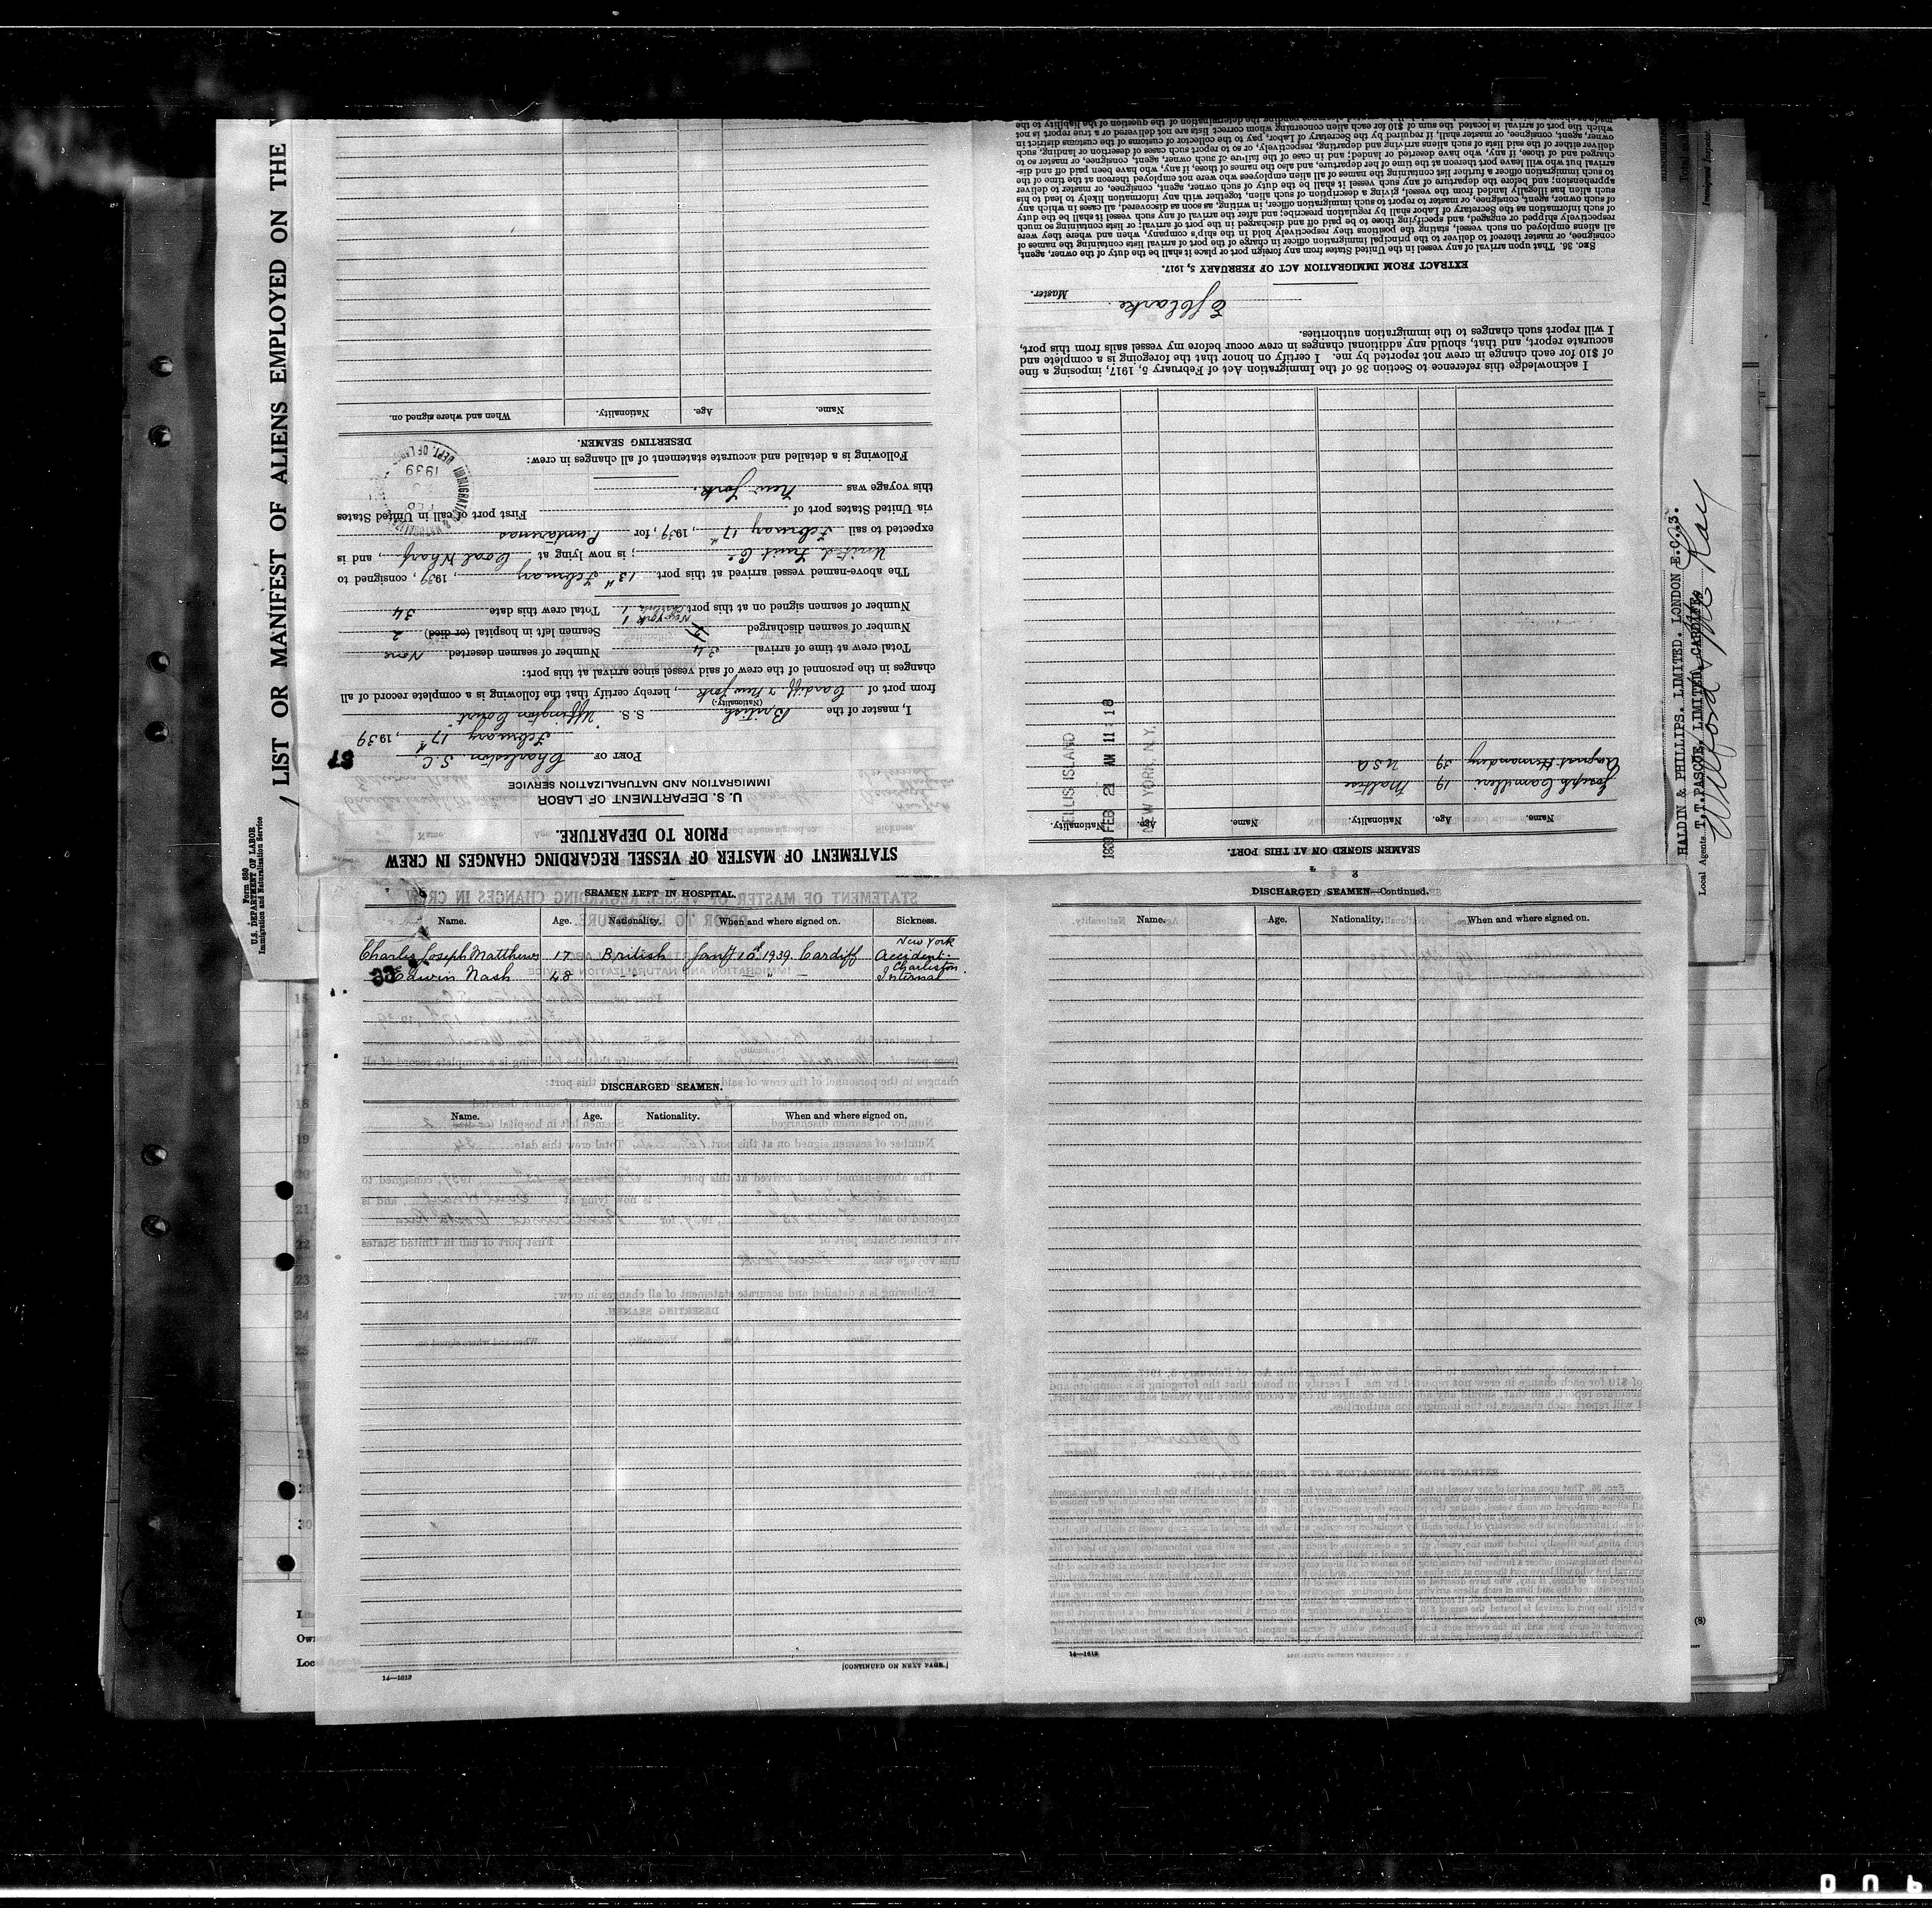 LIST OR MANIFEST OF ALIENS EMPLOYED ON THE
Form 680
U. S. DEPARTMENT OF LABOR
Immigration and Naturalization Service
STATEMENT OF MASTER OF VESSEL REGARDING CHANGES IN CREW
PRIOR TO DEPARTURE.
U. S. DEPARTMENT OF LABOR
IMMIGRATION AND NATURALIZATION SERVICE
PORT OF Charleston S.C.,
February 17th, 1939
I, master of the British S. S. "Uffington Court"
(Nationality.)
from port of Cardiff & New York, hereby certify that the following is a complete record of all
changes in the personnel of the crew of said vessel since arrival at this port:
Total crew at time of arrival 34 Number of seamen deserted None
Number of seamen discharged Seamen left in hospital (or died) 2
Number of seamen signed on at this port New York 1 Charleston 1 Total crew this date 34
The above-named vessel arrived at this port 13th February, 1939, consigned to
United Fruit Co; is now lying at Coal Wharf, and is
expected to sail February 17th, 1939, for Puntarenas
via United States port of First port of call in United States
this voyage was New York.
Following is a detailed and accurate statement of all changes in crew:
DESERTING SEAMEN.
Name. Age. Nationality. When and where signed on.
IMMIGRATION & NATURALIZATION
FEB
1939
DEPT. OF LABOR
SEAMEN SIGNED ON AT THIS PORT.
Name. Age. Nationality. Name. Age. Nationality.
Joseph Camilleri 19 Maltese
August Hernandez 39 USA
ELLIS ISLAND
1939 FEB 21 AM 11 18
NEW YORK, N.Y.
I acknowledge this reference to Section 36 of the Immigration Act of February 5, 1917, imposing a fine
of $10 for each change in crew not reported by me. I certify on honor that the foregoing is a complete and
accurate report, and that, should any additional changes in crew occur before my vessel sails from this port,
I will report such changes to the immigration authorities.
E J Clarke
Master.
EXTRACT FROM IMMIGRATION ACT OF FEBRUARY 5, 1917.
SEC. 36. That upon arrival of any vessel in the United States from any foreign port or place it shall be the duty of the owner, agent,
consignee, or master thereof to deliver to the principal immigration officer in charge of the port of arrival lists containing the names of
all aliens employed on such vessel, stating the positions they respectively hold in the ship's company, when and where they were
respectively shipped or engaged, and specifying those to be paid off and discharged in the port of arrival; or lists containing so much
of such information as the Secretary of Labor shall by regulation prescribe; and after the arrival of any such vessel it shall be the duty
of such owner, agent, consignee, or master to report to such immigration officer, in writing, as soon as discovered, all cases in which any
such alien has illegally landed from the vessel, giving a description of such alien, together with any information likely to lead to his
apprehension; and before the departure of any such vessel it shall be the duty of such owner, agent, consignee, or master to deliver
to such immigration officer a further list containing the names of all alien employees who were not employed thereon at the time of the
arrival but who will leave port thereon at the time of her departure, and also the names of those, if any, who have been paid off and dis-
charged and of those, if any, who have deserted or landed; and in case of the failure of such owner, agent, consignee, or master so to
deliver either of the said lists of such aliens arriving and departing, respectively, or so to report such cases of desertion or landing, such
owner, agent, consignee, or master shall, if required by the Secretary of Labor, pay to the collector of customs of the customs district in
which the port of arrival is located the sum of $10 for each alien concerning whom correct lists are not delivered or a true report is not
HALDIN & PHILLIPS. LIMITED. LONDON E.C.3.
Local Agents T.T.PASCOE, LIMITED, CARDIFF.
Immigrant Inspector
SEAMEN LEFT IN HOSPITAL.
Name. Age. Nationality. When and where signed on. Sickness.
Charles Joseph Matthews 17 British Jany 10th 1939. Cardiff New York Accident.
33 Edwin Nash 48 " — " — Charleston. Internal
DISCHARGED SEAMEN.
Name. Age. Nationality. When and where signed on.
14—1613
[CONTINUED ON NEXT PAGE.]
DISCHARGED SEAMEN—Continued.
Name. Age. Nationality. When and where signed on.
14—1613
15
16
17
18
19
20
21
22
23
24
25
29
30
Local Agents
(3)